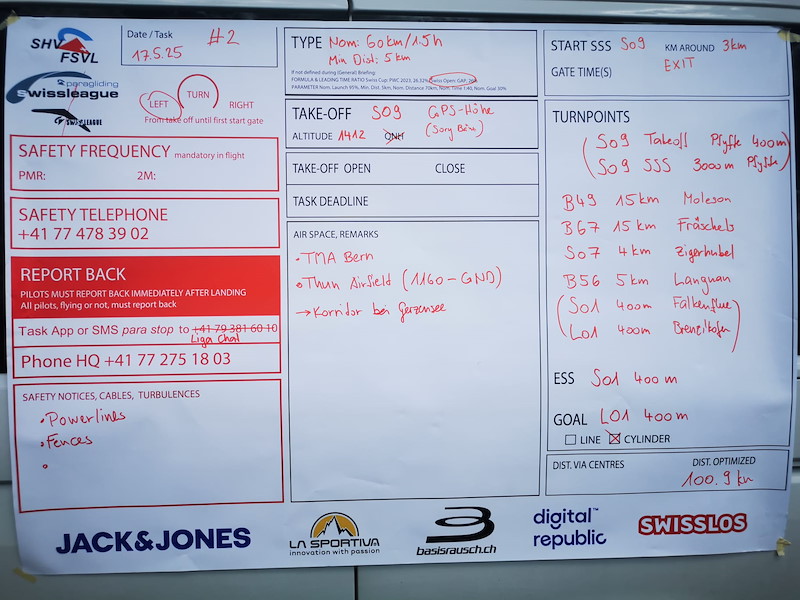 SHV
FSVL
Date / Task
17.5.25
#2
paragliding
swissleague
SWISSLEAGUE
TURN
LEFT
RIGHT
From take off until first start gate
SAFETY FREQUENCY mandatory in flight
PMR:
2M:
SAFETY TELEPHONE
+41 77 478 39 02
REPORT BACK
PILOTS MUST REPORT BACK IMMEDIATELY AFTER LANDING
All pilots, flying or not, must report back
Task App or SMS para stop to +41 79 381 60 10
Liga Chat
Phone HQ +41 77 275 18 03
SAFETY NOTICES, CABLES, TURBULENCES
• Powerlines
• Fences
•
TYPE Nom: 60km/1.5h
Min Dist: 5km
If not defined during (General) Briefing:
FORMULA & LEADING TIME RATIO Swiss Cup: PWC 2023, 26.32% Swiss Open: GAP, 26%
PARAMETER Nom. Launch 95%, Min. Dist. 5km, Nom. Distance 70km, Nom. Time 1:40, Nom. Goal 30%
TAKE-OFF S09 GPS-Höhe
ALTITUDE 1412 QNH
TAKE-OFF OPEN
CLOSE
TASK DEADLINE
AIR SPACE, REMARKS
• TMA Bern
• Thun Airfield (1160-GND)
→ Korridor bei Gerzensee
START SSS S09 KM AROUND 3km
GATE TIME(S) EXIT
TURNPOINTS
(S09 Takeoff Pfyffe 400m)
(S09 SSS 3000m Pfyffe)
B49 15km Moleson
B67 15km Fräschels
S07 4km Zigerhubel
B56 5km Langnau
(S01 400m Falkenflue
L01 400m Brenzikofen)
ESS S01 400m
GOAL L01 400m
LINE CYLINDER
DIST. VIA CENTRES
DIST. OPTIMIZED
100.9 km
JACK&JONES
LA SPORTIVA
innovation with passion
basisrausch.ch
digital™
republic
SWISSLOS